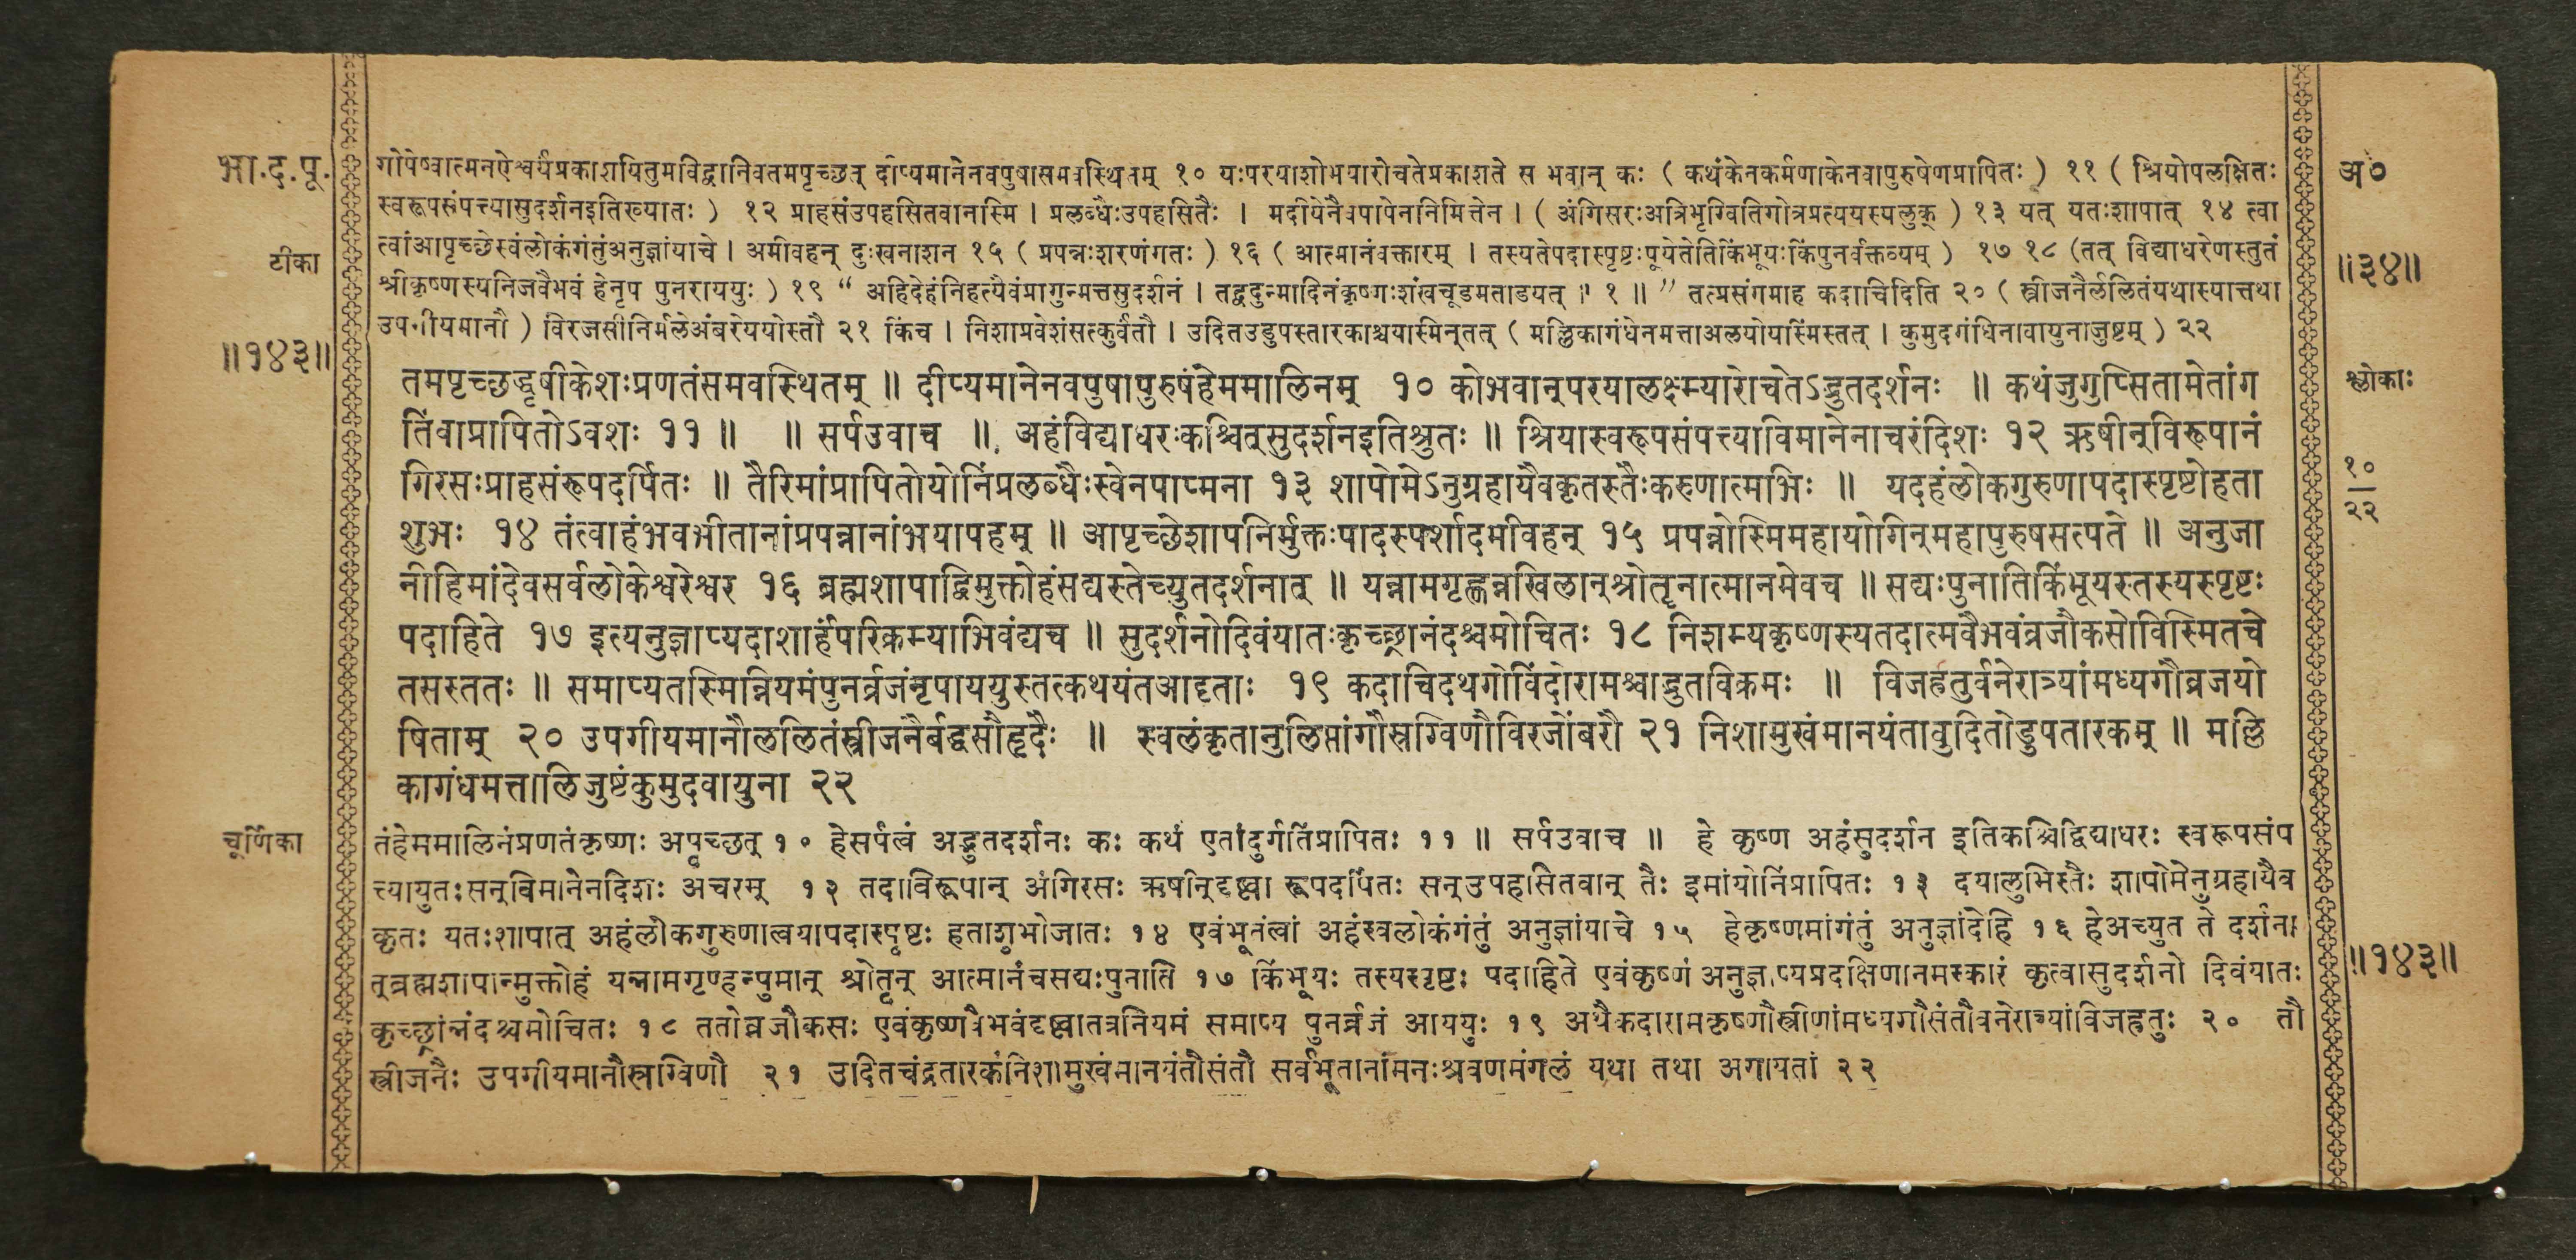 भा.द.पू.
टीका
॥१४३॥
गोपेष्वात्मनऐश्वर्यंप्रकाशयितुमविद्वानिवतमपृच्छत् दीप्यमानेनवपुषासमवस्थितम् १० यःपरयाशोभयारोचतेप्रकाशते स भवान् कः ( कथंकेनकर्मणाकेनवापुरुषेणप्रापितः ) ११ ( श्रियोपलक्षितः
स्वरूपसंपत्त्यासुदर्शनइतिख्यातः ) १२ प्राहसंउपहसितवानस्मि । प्रलब्धैःउपहसितैः । मदीयेनैवपापेननिमित्तेन । ( अंगिसरःअत्रिभृग्वितिगोत्रप्रत्ययस्यलुक् ) १३ यत् यतःशापात् १४ त्वा
त्वांआपृच्छेस्वंलोकंगंतुंअनुज्ञांयाचे । अमीवहन् दुःखनाशन १५ ( प्रपन्नःशरणंगतः ) १६ ( आत्मानंवक्तारम् । तस्यतेपदास्पृष्टःपूयेतेतिकिंभूयःकिंपुनर्वक्तव्यम् ) १७ १८ (तत् विद्याधरेणस्तुतं
श्रीकृष्णस्यनिजवैभवं हेनृप पुनराययुः ) १९ “ अहिदेहंनिहत्यैवंप्रागुन्मत्तसुदर्शनं । तद्वदुन्मादिनंकृष्णःशंखचूडमताडयत् ॥ १ ॥ ” तत्प्रसंगमाह कदाचिदिति २० ( स्त्रीजनैर्ललितंयथास्यात्तथा
उपगीयमानौ ) विरजसीनिर्मलेअंबरेययोस्तौ २१ किंच । निशाप्रवेशंसत्कुर्वतौ । उदितउडुपस्तारकाश्चयास्मिन्‌तत् ( मल्लिकागंधेनमत्ताअलयोयस्मिंस्तत् । कुमुदगंधिनावायुनाजुष्टम् ) २२
तमपृच्छद्धृषीकेशःप्रणतंसमवस्थितम् ॥ दीप्यमानेनवपुषापुरुषंहेममालिनम् १० कोभवान्‌परयालक्ष्म्यारोचतेऽद्भुतदर्शनः ॥ कथंजुगुप्सितामेतांग
तिंवाप्रापितोऽवशः ११ ॥ ॥ सर्पउवाच ॥ अहंविद्याधरःकश्चित्‌सुदर्शनइतिश्रुतः ॥ श्रियास्वरूपसंपत्त्याविमानेनाचरंदिशः १२ ऋषीन्‌विरूपानं
गिरसःप्राहसंरूपदर्पितः ॥ तैरिमांप्रापितोयोनिंप्रलब्धैःस्वेनपाप्मना १३ शापोमेऽनुग्रहायैवकृतस्तैःकरुणात्मभिः ॥ यदहंलोकगुरुणापदास्पृष्टोहता
शुभः १४ तंत्वाहंभवभीतानांप्रपन्नानांभयापहम् ॥ आपृच्छेशापनिर्मुक्तःपादस्पर्शादमीवहन् १५ प्रपन्नोस्मिमहायोगिन्‌महापुरुषसत्पते ॥ अनुजा
नीहिमांदेवसर्वलोकेश्वरेश्वर १६ ब्रह्मशापाद्विमुक्तोहंसद्यस्तेच्युतदर्शनात् ॥ यन्नामगृह्णन्नखिलान्‌श्रोतॄनात्मानमेवच ॥ सद्यःपुनातिकिंभूयस्तस्यस्पृष्टः
पदाहिते १७ इत्यनुज्ञाप्यदाशार्हंपरिक्रम्याभिवंद्यच ॥ सुदर्शनोदिवंयातःकृच्छ्रान्नंदश्चमोचितः १८ निशम्यकृष्णस्यतदात्मवैभवंव्रजौकसोविस्मितचे
तसस्ततः ॥ समाप्यतस्मिन्नियमंपुनर्व्रजंनृपाययुस्तत्कथयंतआदृताः १९ कदाचिदथगोविंदोरामश्चाद्भुतविक्रमः ॥ विजह्रतुर्वनेरात्र्यांमध्यगौव्रजयो
षिताम् २० उपगीयमानौललितंस्त्रीजनैर्बद्धसौहृदैः ॥ स्वलंकृतानुलिप्तांगौस्रग्विणौविरजोंबरौ २१ निशामुखंमानयंतावुदितोडुपतारकम् ॥ मल्लि
कागंधमत्तालिजुष्टंकुमुदवायुना २२
चूर्णिका
तंहेममालिनंप्रणतंकृष्णः अपृच्छत् १० हेसर्पत्वं अद्भुतदर्शनः कः कथं एतांदुर्गतिंप्रापितः ११ ॥ सर्पउवाच ॥ हे कृष्ण अहंसुदर्शन इतिकश्चिद्विद्याधरः स्वरूपसंप
त्त्यायुतःसन्‌विमानेनदिशः अचरम् १३ तदाविरूपान् अंगिरसः ऋषीन्‌दृष्ट्वा रूपदर्पितः सन्‌उपहसितवान् तैः इमांयोनिंप्रापितः १३ दयालुभिस्तैः शापोमेनुग्रहायैव
कृतः यतःशापात् अहंलोकगुरुणात्वयापदास्पृष्टः हताशुभोजातः १४ एवंभूतंत्वां अहंस्वलोकंगंतुं अनुज्ञांयाचे १५ हेकृष्णमांगंतुं अनुज्ञांदेहि १६ हेअच्युत ते दर्शना
त्‌ब्रह्मशापान्मुक्तोहं यन्नामगृण्हन्पुमान् श्रोतॄन् आत्मानंचसद्यःपुनाति १७ किंभूयः तस्यस्पृष्टः पदाहिते एवंकृष्णं अनुज्ञाप्यप्रदक्षिणानमस्कारं कृत्वासुदर्शनो दिवंयातः
कृच्छ्रांन्नंदश्चमोचितः १८ ततोव्रजौकसः एवंकृष्णवैभवंदृष्ट्वातत्रनियमं समाप्य पुनर्व्रजं आययुः १९ अथैकदारामकृष्णौस्त्रीणांमध्यगौसंतौवनेरात्र्यांविजह्रतुः २० तौ
स्त्रीजनैः उपगीयमानौस्रग्विणौ २१ उदितचंद्रतारकंनिशामुखंमानयंतौसंतौ सर्वभूतानांमनःश्रवणमंगलं यथा तथा अगायतां २२
अ०
॥३४॥
श्लोकाः
१०
२२
॥१४३॥